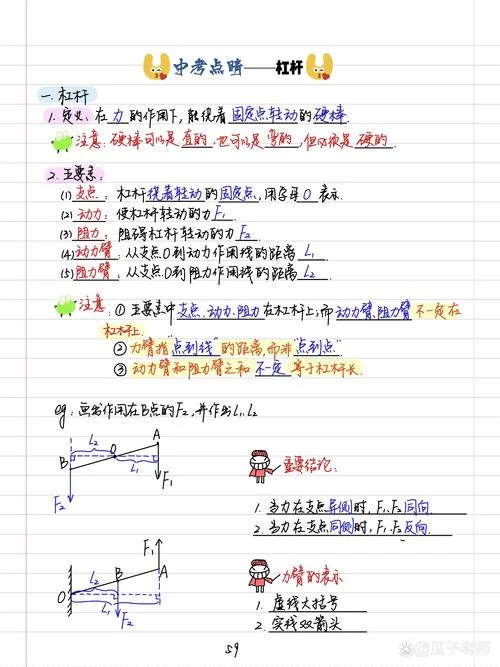 中考点睛——杠杆
一.杠杆
1.定义:在力的作用下,能绕着固定点转动的硬棒.
注意:硬棒可以是直的,也可以是弯的,但必须是硬的.
2.五要素:
(1)支点:杠杆绕着转动的固定点,用字母O表示.
(2)动力:使杠杆转动的力F₁.
(3)阻力:阻碍杠杆转动的力F₂
(4)动力臂:从支点O到动力作用线的距离L₁
(5)阻力臂:从支点O到阻力作用线的距离L₂
注意:①五要素中支点、动力、阻力在杠杆上;而动力臂、阻力臂不一定在
杠杆上.
②力臂指"点到线"的距离,而非"点到点".
③动力臂和阻力臂之和不一定等于杠杆长.
eg:画出作用在B点的F₂,并作出L₁、L₂
L₂
O
A
B
L₁
F₁
F₂
重要结论:
1.当力在支点异侧时,F₁、F₂同向.
2.当力在支点同侧时,F₁、F₂反向.
F₁
L₂
B
A
O
L₁
F₂
力臂的表示
1.虚线大括号
2.实线双箭头
59
@瓜子老师